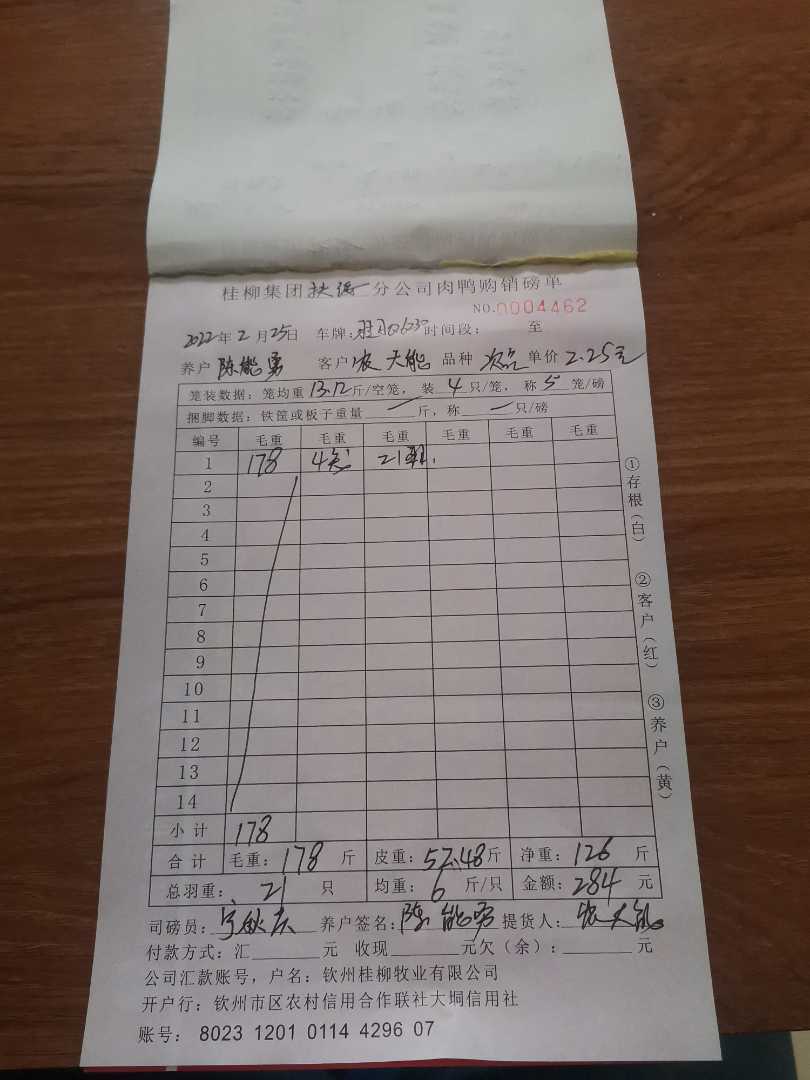 桂柳集团扶绥分公司肉鸭购销磅单
NO.0004462
2022年2月25日 车牌: 时间段: 至
养户 陈能勇 客户 农天能 品种 次品 单价 2.25元
笼装数据: 笼均重 13.12 斤/空笼, 装 4 只/笼, 称 5 笼/磅
捆脚数据: 铁筐或板子重量 一 斤, 称 一 只/磅
编号 毛重 毛重 毛重 毛重 毛重 毛重
1 178 4笼 21羽
2
3
4
5
6
7
8
9
10
11
12
13
14
小计 178
合计 毛重: 178 斤 皮重: 52.48 斤 净重: 126 斤
总羽重: 21 只 均重: 6 斤/只 金额: 284 元
司磅员: 养户签名: 陈能勇 提货人: 农天能
付款方式: 汇 元 收现 元欠(余): 元
公司汇款账号, 户名: 钦州桂柳牧业有限公司
开户行: 钦州市区农村信用合作联社大垌信用社
账号: 8023 1201 0114 4296 07
①存根(白)
②客户(红)
③养户(黄)